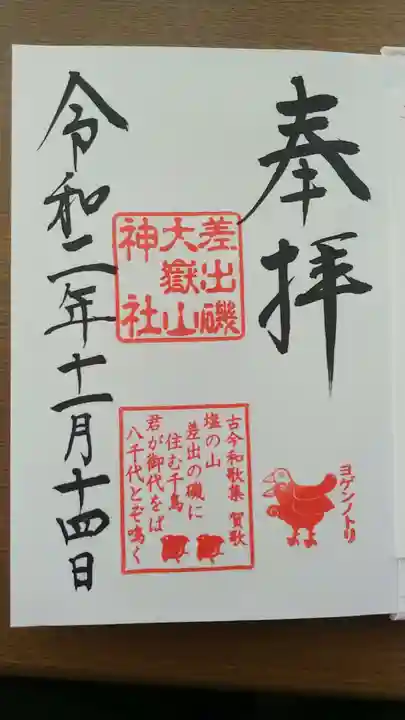 奉拝
差出磯
大嶽山
神社
古今和歌集 賀歌
塩の山
差出の磯に
住む千鳥
君が御代をば
八千代とぞ鳴く
ヨゲンノトリ
令和二年十一月十四日